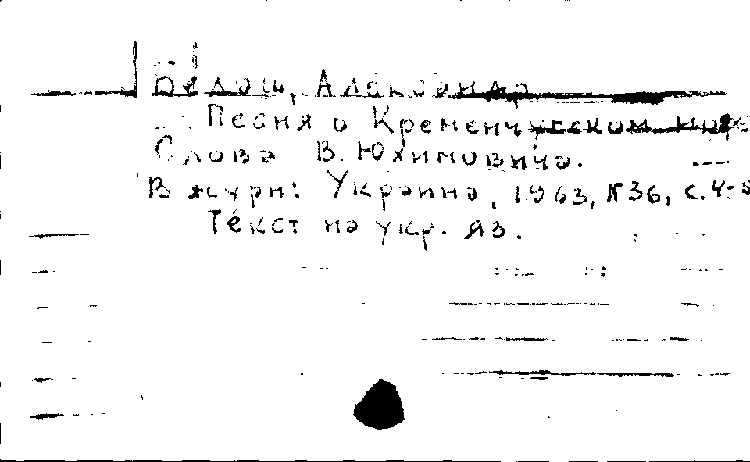 Белаш, Александр
Песня о Кременчугском море
Слова В. Юхимовича.
В журн: Украина, 1963, №36, с. 4-5
Текст на укр. яз.